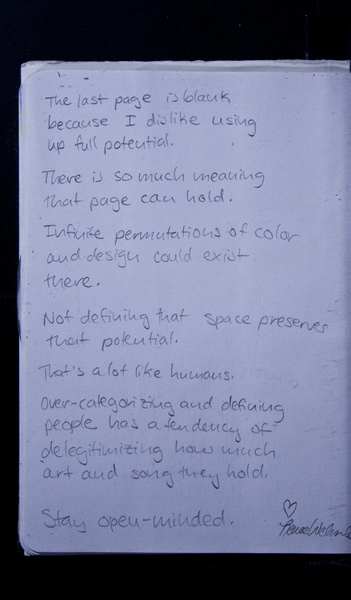 The last page is blank
because I dislike using
up full potential.
There is so much meaning
that page can hold.
Infinite permutations of color
and design could exist
there.
Not defining that space preserves
that potential.
That's a lot like humans.
Over-categorizing and defining
people has a tendency of
delegitimizing how much
art and song they hold.
Stay open-minded.